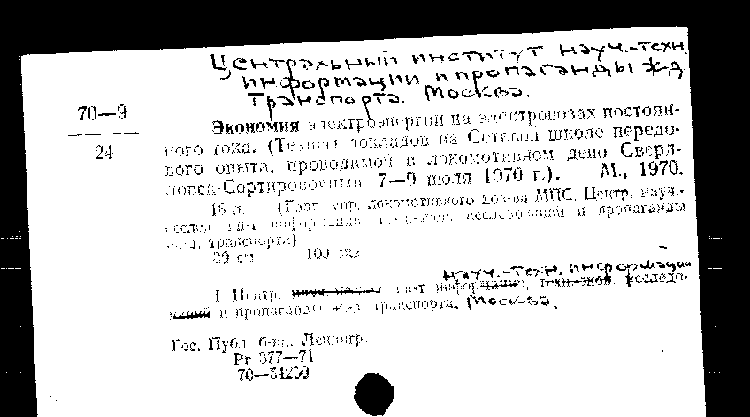 Центральный институт науч.-техн.
информации и пропаганды ж-д
транспорта. Москва.
70—9
24
Экономия электроэнергии на электровозах постоян-
ного тока. (Тезисы докладов на Сетевой школе передо-
вого опыта, проводимой в локомотивном депо Сверд-
ловск-Сортировочный 7—9 июля 1970 г.). М., 1970.
16 л. (Глав. упр. локомотивного хоз-ва МПС. Центр. науч.-
исследований и пропаганды
ж.-д. транспорта)
29 см 100 экз.
науч.-техн. информации
I. Центр. ин-т информации,
и пропаганды ж.-д. транспорта. Москва.
Гос. Публ. б-ка. Ленингр.
Pr 377—71